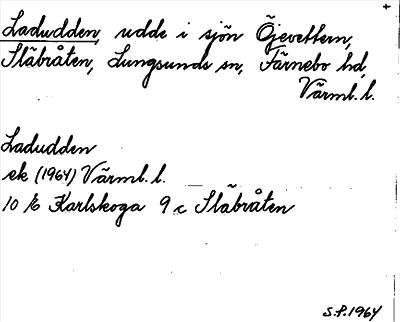 Ladudden, udde i sjön Öjevettern,
Släbråten, Lungsunds sn, Färnebo hd,
Värml. l.
Ladudden
ek (1964) Värml. l.
10 E Karlskoga 9 c Släbråten
S.P. 1964